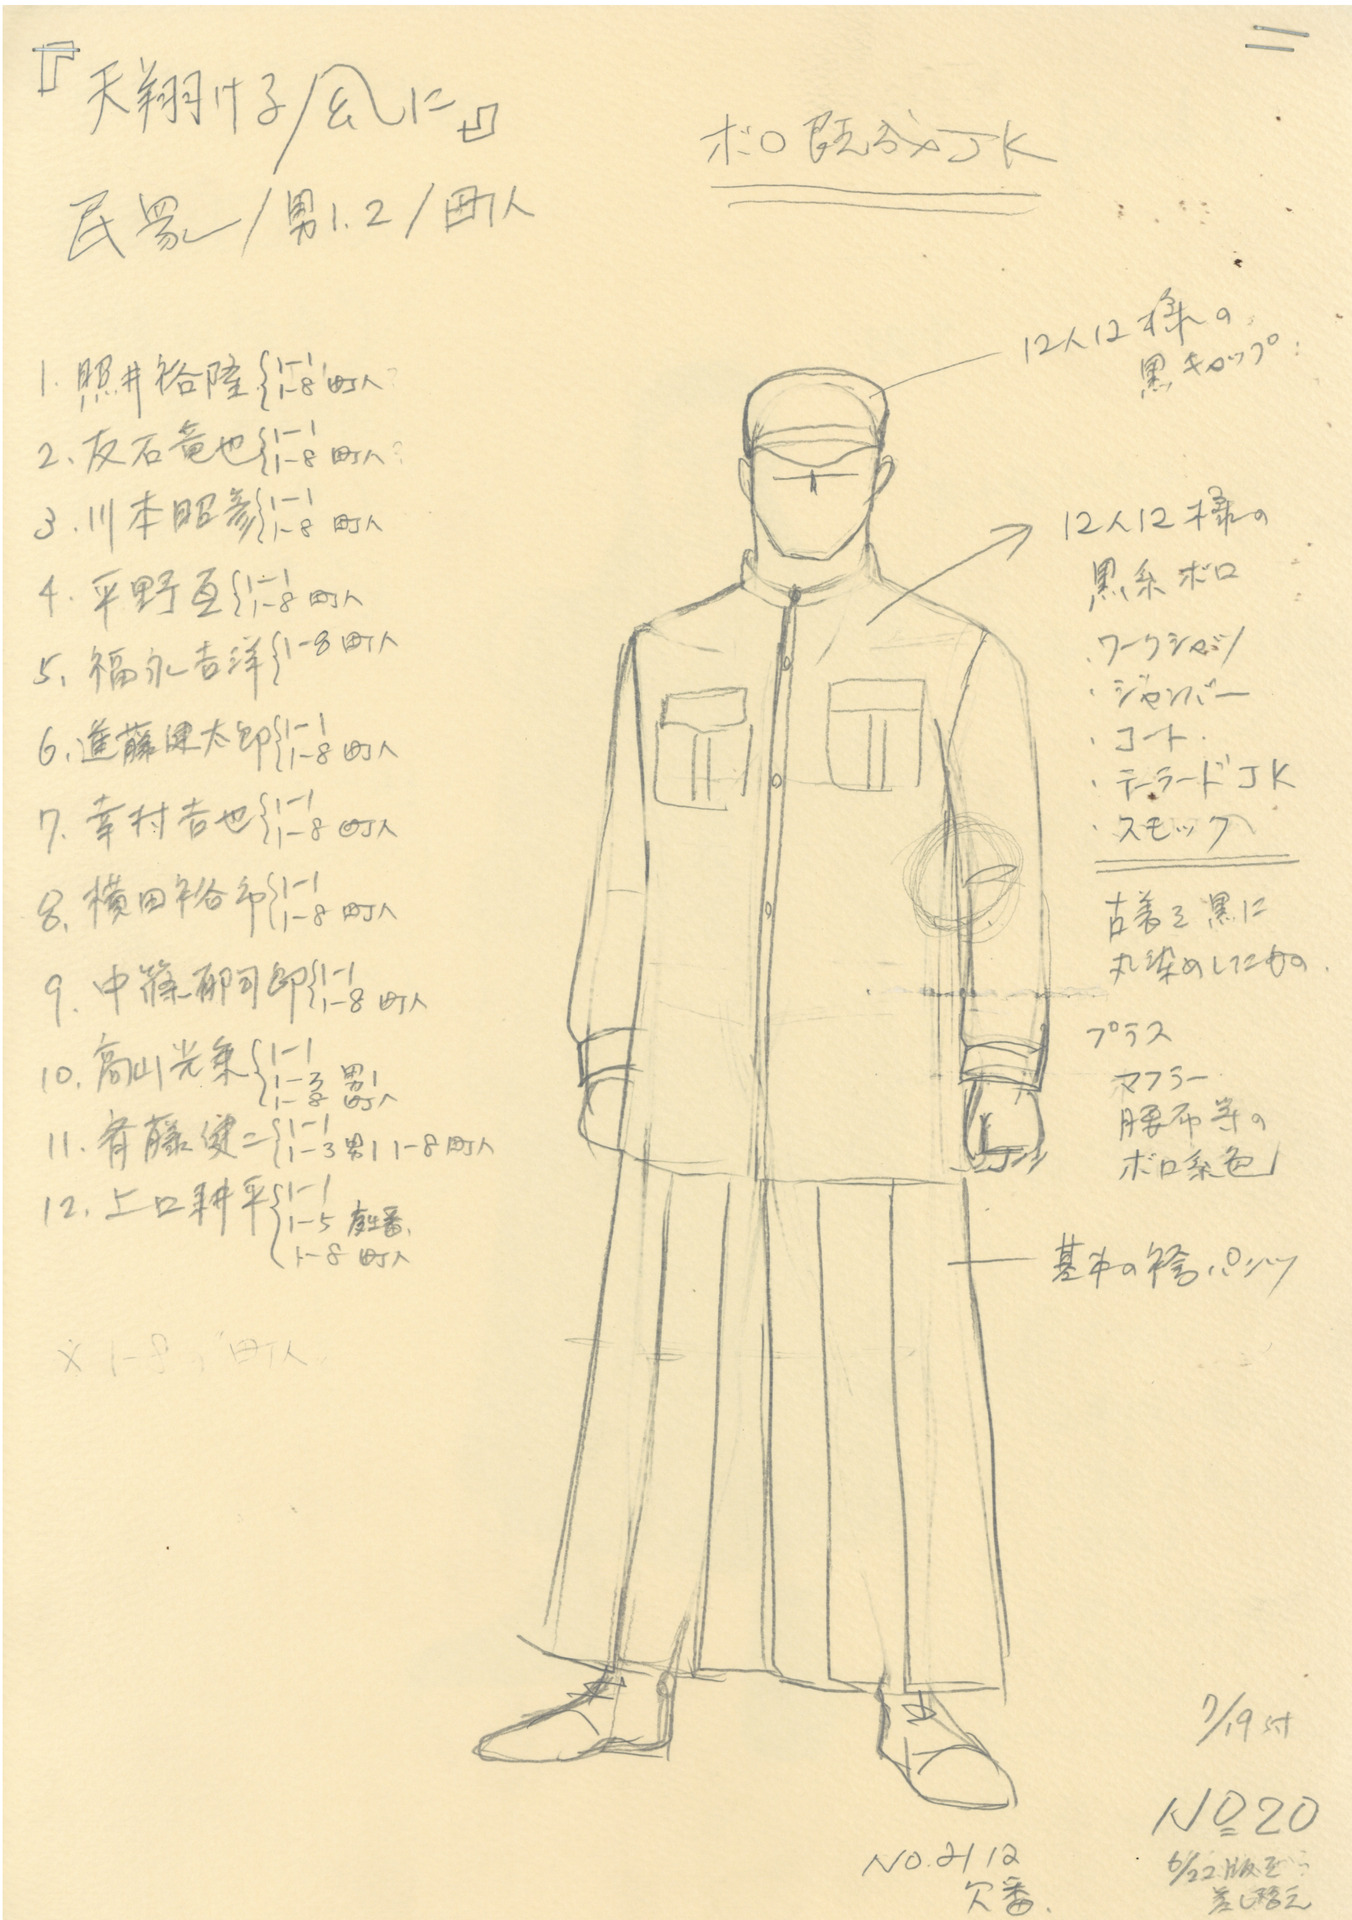 『天翔ける風に』
民衆/男1.2/町人
ボロ既成JK
1. 照井裕隆{1-1
1-8 町人?
2. 友石竜也{1-1
1-8 町人?
3. 川本昭彦{1-1
1-8 町人
4. 平野亙{1-1
1-8 町人
5. 福永吉洋{1-8 町人
6. 進藤健太郎{1-1
1-8 町人
7. 幸村吉也{1-1
1-8 町人
8. 横田裕市{1-1
1-8 町人
9. 中篠郁司郎{1-1
1-8 町人
10. 高山光乗{1-1
1-3 男1
1-8 町人
11. 斉藤健二{1-1
1-3 男1 1-8 町人
12. 上口耕平{1-1
1-5
1-8 町人
※ 1-8, 町人
12人12様の
黒キャップ
12人12様の
黒系ボロ
・ワークシャツ
・ジャンバー
・コート
・テーラードJK
・スモック
古着を黒に
丸染めしたもの.
プラス
マフラー
腰布等の
ボロ系色
基本の袴パンツ
7/19付
No.20
6/22版を
差し替え
NO.2112
欠番.